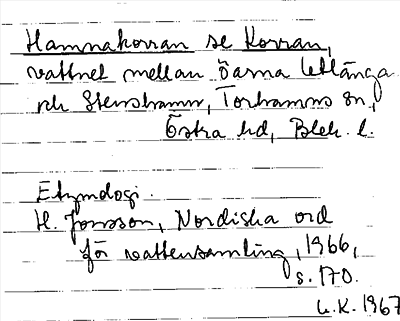 Hamnakorran se Korran,
vattnet mellan öarna Utlånga
och Stenshamn, Torhamns sn,
Östra hd, Blek. l.
Etymologi.
H. Jonsson, Nordiska ord
för vattensamling, 1966,
s. 170.
U.K. 1967